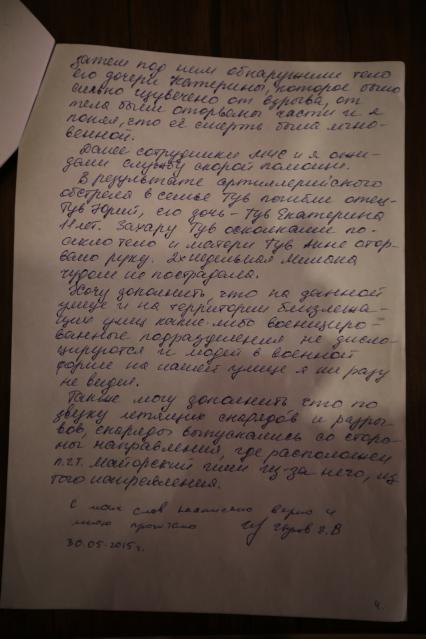 затем под ним обнаружили тело
его дочери Катерины, которое было
сильно изувечено от взрыва, от
тела были оторваны части и я
понял, что её смерть была мгно-
венной.
Далее сотрудники МЧС и я ожи-
дали службу скорой помощи.
В результате артиллерийского
обстрела в семье Тув погибли отец-
Тув Юрий, его дочь - Тув Екатерина
11 лет. Захару Тув осколками по-
секло тело и матери Тув Анне отор-
вало руку. 2х недельная Милана
чудом не пострадала.
Хочу дополнить, что на данной
улице и на территории близлежа-
щих улиц какие-либо военизиро-
ванные подразделения не дисло-
цируются и людей в военной
форме на нашей улице я ни разу
не видел.
Также могу дополнить что по
звуку летящих снарядов и разры-
вов, снаряды выпускались со сторо-
ны направления, где расположен
п.г.т. Майорский или из-за него, из
того направления.
С моих слов написано верно и
мною прочитано
30.05.2015 г.
4.